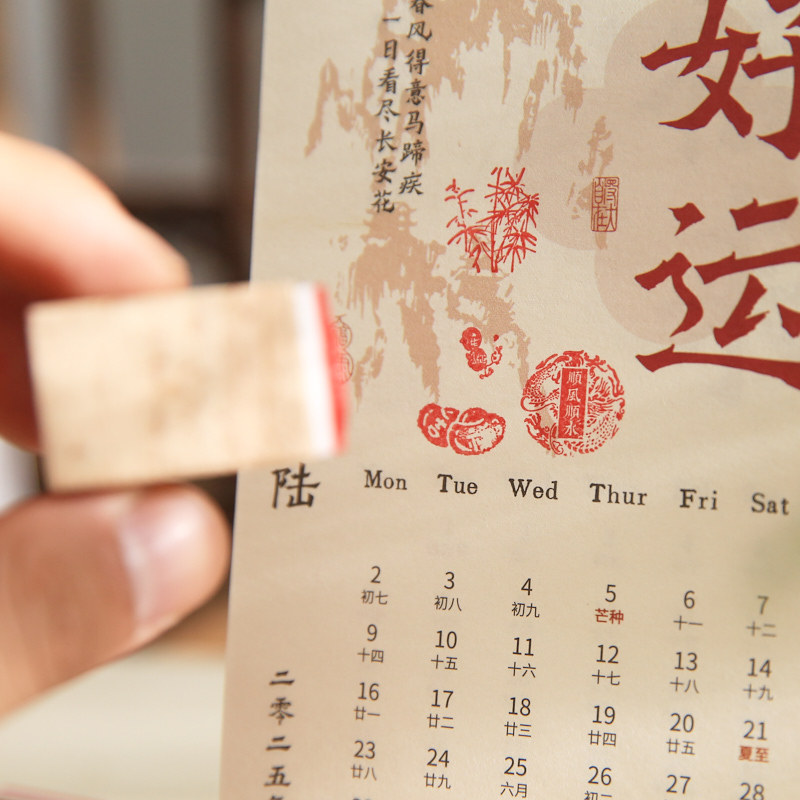 春风得意马蹄疾
一日看尽长安花
好运
顺风顺水
陆
Mon Tue Wed Thur Fri Sat
2 3 4 5 6 7
初七 初八 初九 芒种 十一 十二
9 10 11 12 13 14
十四 十五 十六 十七 十八 十九
16 17 18 19 20 21
廿一 廿二 廿三 廿四 廿五 夏至
23 24 25 26 27 28
廿八 廿九 六月
二零二五年